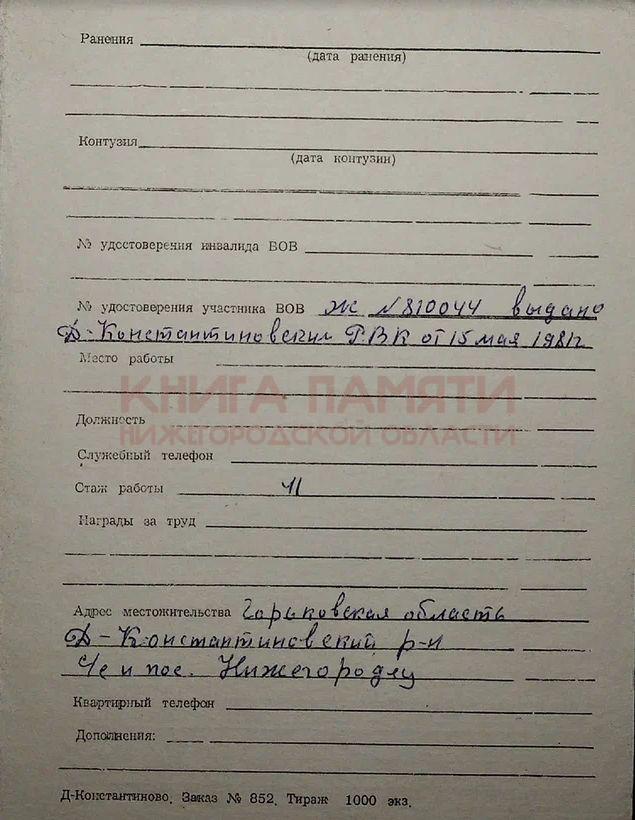 Ранения
(дата ранения)
Контузия
(дата контузии)
№ удостоверения инвалида ВОВ
№ удостоверения участника ВОВ Ж №810044 выдано
Д-Константиновским РВК от 15 мая 1981г
Место работы
КНИГА ПАМЯТИ
Должность
НИЖЕГОРОДСКОЙ ОБЛАСТИ
Служебный телефон
Стаж работы 41
Награды за труд
Адрес местожительства Горьковская область
Д-Константиновский р-н
пос. Нижегородец
Квартирный телефон
Дополнения:
Д-Константиново. Заказ № 852. Тираж 1000 экз.